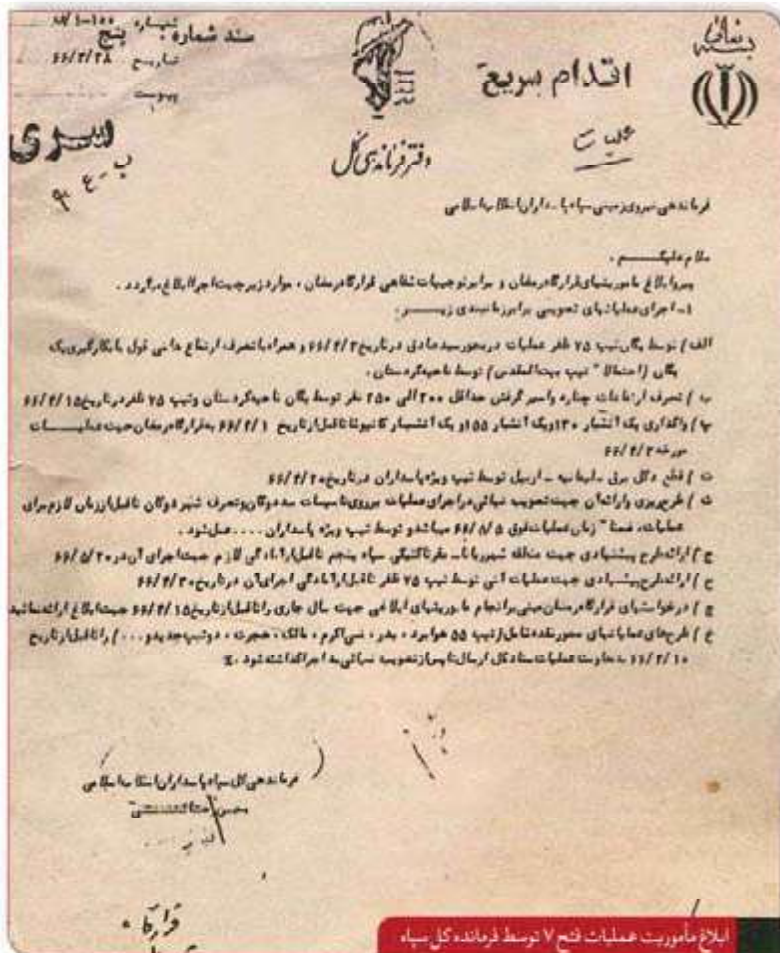 بسمه تعالی
سند شماره: پنج
شماره
تاریخ ۶۶/۳/۲۸
پیوست
اقدام سریع
سری
عملیات
دفتر فرماندهی کل
فرماندهی نیروی زمینی سپاه پاسداران انقلاب اسلامی
سلام علیکم .
پیرو ابلاغ ماموریتهای قرارگاه رمضان و برابر توجیهات شفاهی قرارگاه رمضان ، موارد زیر جهت اجرا ابلاغ میگردد .
۱- اجرای عملیاتهای تصویبی برابر زمانبندی زیر :
الف / توسط یگان تیپ ۷۵ ظفر عملیات در محور سیدصادق در تاریخ ۶۶/۴/۲ و همراه با تصرف ارتفاع با بکارگیری یک
یگان (احتمالا" تیپ بیت المقدس) توسط ناحیه کردستان .
ب / تصرف ارتفاعات چناره و اسیر گرفتن حداقل ۲۰۰ الی ۲۵۰ نفر توسط یگان ناحیه کردستان و تیپ ۷۵ ظفر در تاریخ ۶۶/۴/۱۵
پ / واگذاری یک آتشبار ۱۳۰ و یک آتشبار ۱۵۵ و یک آتشبار کاتیوشا تا قبل از تاریخ ۶۶/۴/۱ به قرارگاه رمضان جهت عملیات
مورخه ۶۶/۴/۲
ت / قطع دکل برق سلیمانیه - اربیل توسط تیپ ویژه پاسداران در تاریخ ۶۶/۴/۲۰
ث / طرح ریزی و ارائه آن جهت تصویب نهائی در اجرای عملیات بر روی تاسیسات سد دوکان و تصرف شهر دوکان تا قبل از زمان لازم برای
عملیات، ضمنا" زمان عملیات فوق ۶۶/۵/۵ میباشد و توسط تیپ ویژه پاسداران .... عمل شود .
ج / ارائه طرح پیشنهادی جهت منطقه مقر تاکتیکی سپاه پنجم تا قبل از آمادگی لازم جهت اجرای آن در ۶۶/۵/۲۰
ح / ارائه طرح پیشنهادی جهت عملیات آتی توسط تیپ ۷۵ ظفر تا قبل از آمادگی اجرای آن در تاریخ ۶۶/۴/۳۰
چ / درخواستهای قرارگاه رمضان مبنی بر انجام ماموریتهای ابلاغی جهت سال جاری را تا قبل از تاریخ ۶۶/۴/۱۵ جهت ابلاغ ارائه نمائید
خ / طرح های عملیاتهای شامل از تیپ ۵۵ هوابرد ، بدر ، نبی اکرم ، مالک ، هجرت ، دو تیپ جدید و ... / را تا قبل از تاریخ
۶۶/۴/۱۰ به معاونت عملیات ستاد کل ارسال تا پس از تصویب نهائی به اجرا گذاشته شود .٪
فرماندهی کل سپاه پاسداران انقلاب اسلامی
محسن رضائی
قرارگاه
ابلاغ مأموریت عملیات فتح ۷ توسط فرمانده کل سپاه